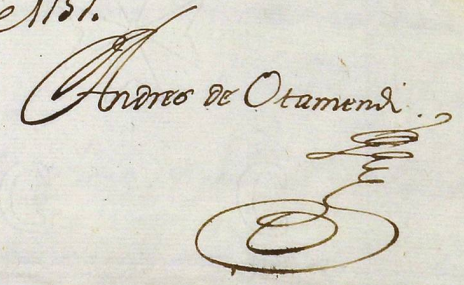 1757.
Andres de Otamendi.